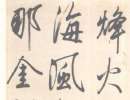 烽火
海風
那金